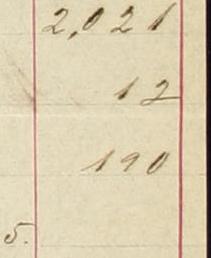 2,021
12
190
5.